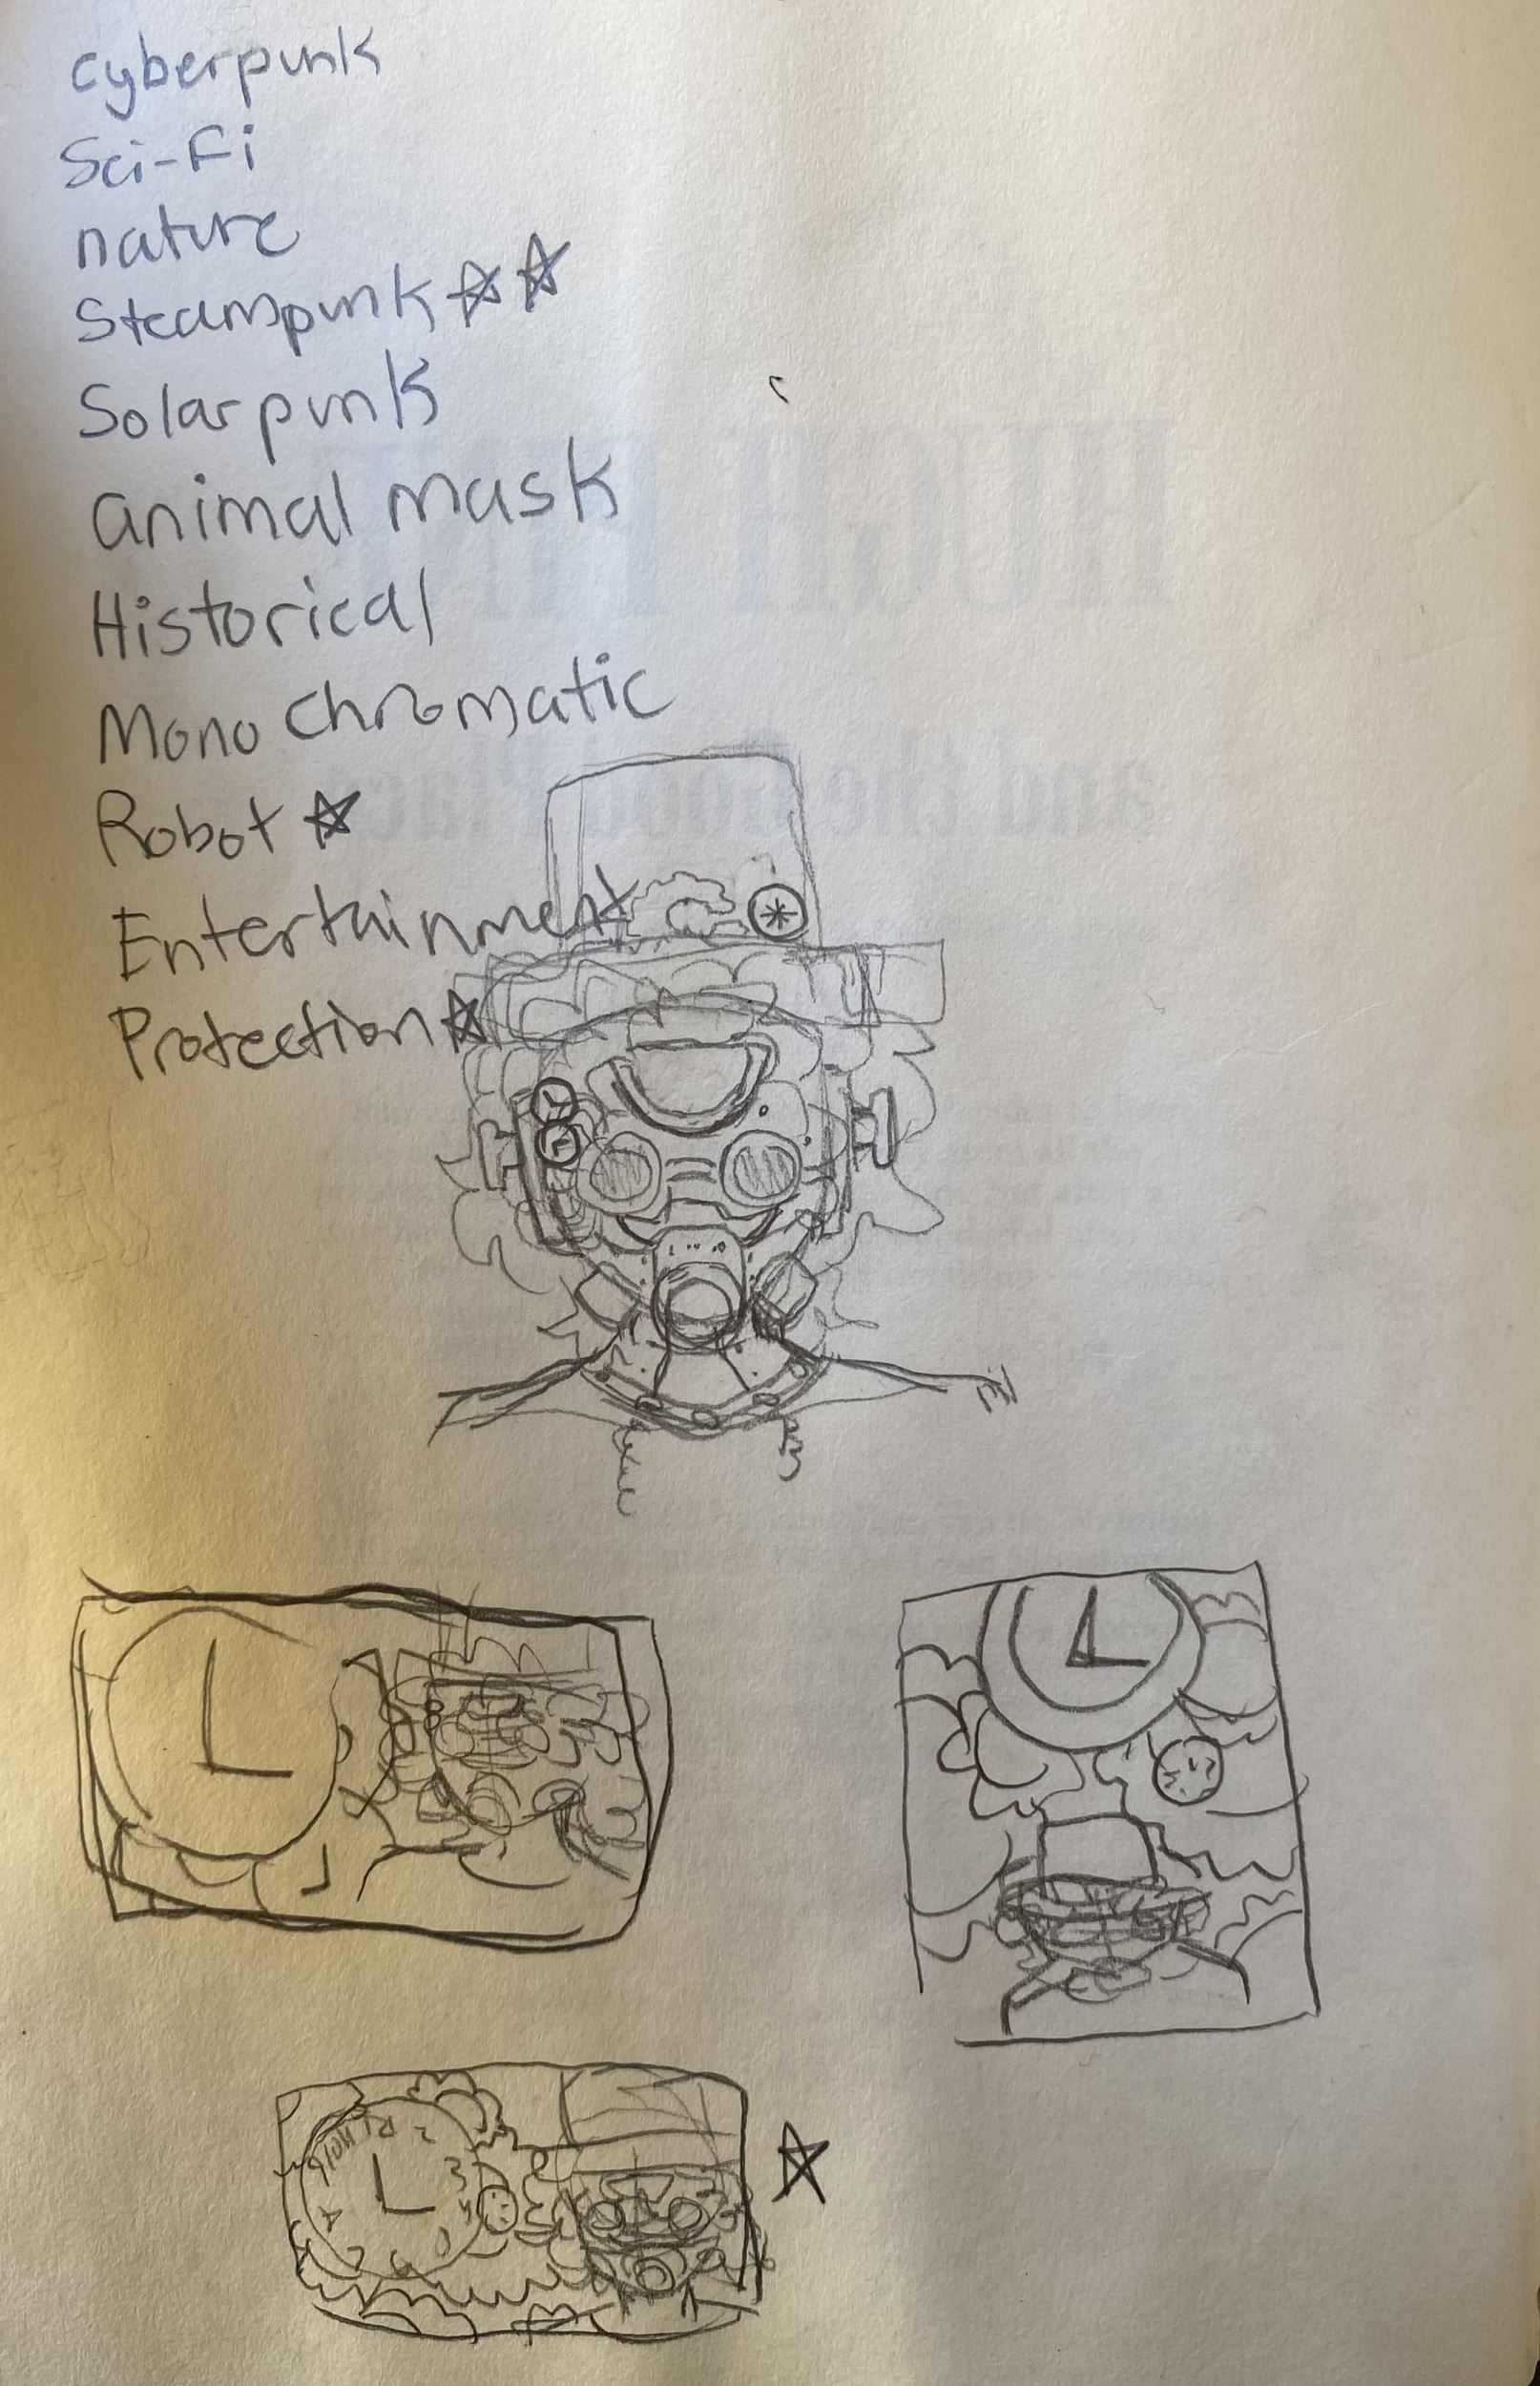 cyberpunk
Sci-Fi
nature
Steampunk
Solarpunk
animal mask
Historical
Mono chromatic
Robot
Entertainment
Protection